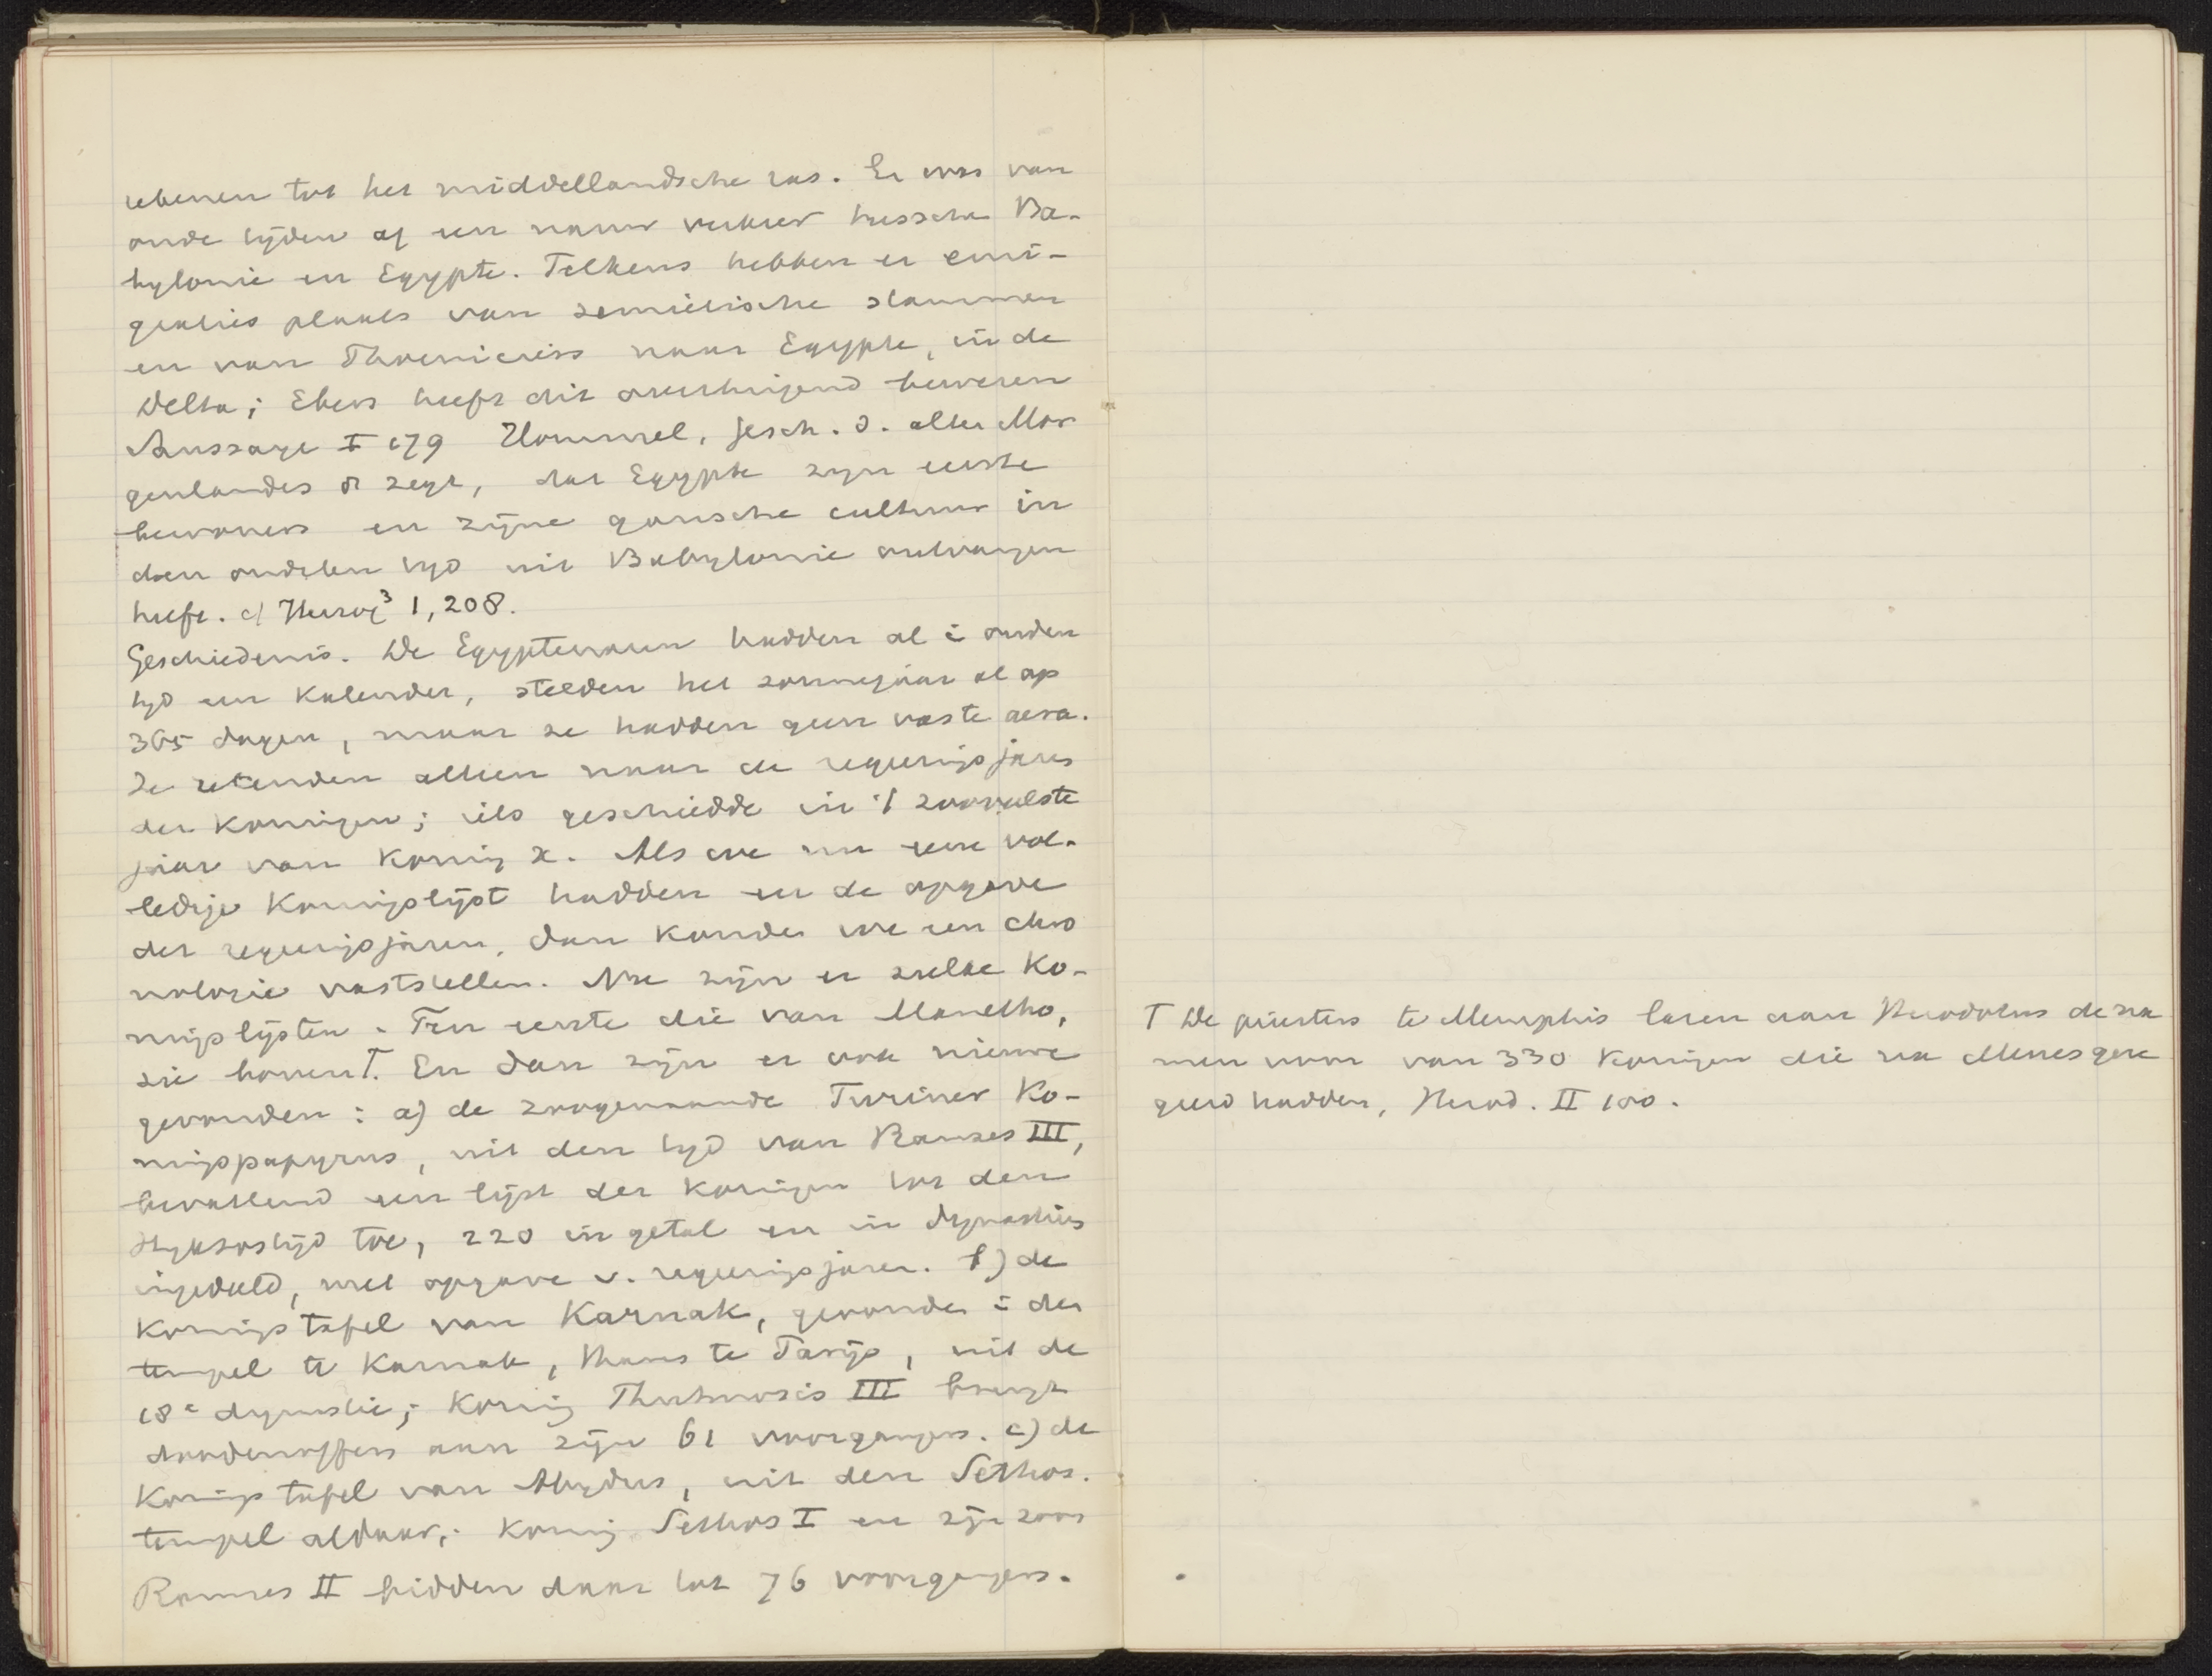 rekenen tot het middellandsche ras. Er was van
oude tijden af een nauw verkeer tusschen Ba-
bylonië en Egypte. Telkens hebben er emi-
graties plaats van semietische stammen
en van Phoeniciërs naar Egypte, in de
Delta; Ebers heeft dit overtuigend bewezen
Saussaye I 179 Hommel, Gesch. d. alten Mor
genlandes zegt, dat Egypte zijn eerste
bewoners en zijne gansche cultuur in
den oudsten tijd uit Babylonië ontvangen
heeft. cf Herzog³ 1,208.
Geschiedenis. De Egyptenaren hadden al i ouden
tijd een Kalender, stelden het zonnejaar al op
365 dagen, maar ze hadden geen vaste aera.
Ze rekenden alleen naar de regeeringsjaren
der Koningen; iets geschiedde in 't zooveelste
jaar van Koning X. Als we nu eene vol-
ledige Koningslijst hadden en de opgave
der regeeringsjaren, dan konden we een chro
nologie vaststellen. Nu zijn er zulke Ko-
ningslijsten. Ten eerste die van Manetho,
zie boven T. En dan zijn er ook nieuwe
gevonden: a) de zoogenaamde Turiner Ko-
ningspapyrus, uit den tijd van Ramses III,
bevattend een lijst der Koningen tot den
Hyksostijd toe, 220 in getal en in dynastiës
ingedeeld, met opgave v. regeeringsjaren. b) de
Koningstafel van Karnak, gevonden i den
tempel te Karnak, thans te Parijs, uit de
18e dynastie; Koning Thutmosis III brengt
doodenoffers aan zijn 61 voorgangers. c) de
Koningstafel van Abydus, uit den Sethos-
tempel aldaar; Koning Sethos I en zijn zoon
Ramses II bidden daar tot 76 voorgangers.
T De priesters te Memphis lazen aan Herodotus de na
men voor van 330 Koningen die na Menes gere
geerd hadden, Herod. II 100.